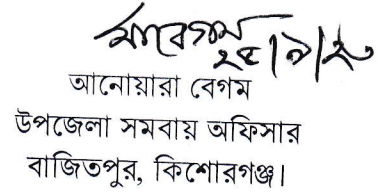 আনোয়ারা বেগম
উপজেলা সমবায় অফিসার
বাজিতপুর, কিশোরগঞ্জ।